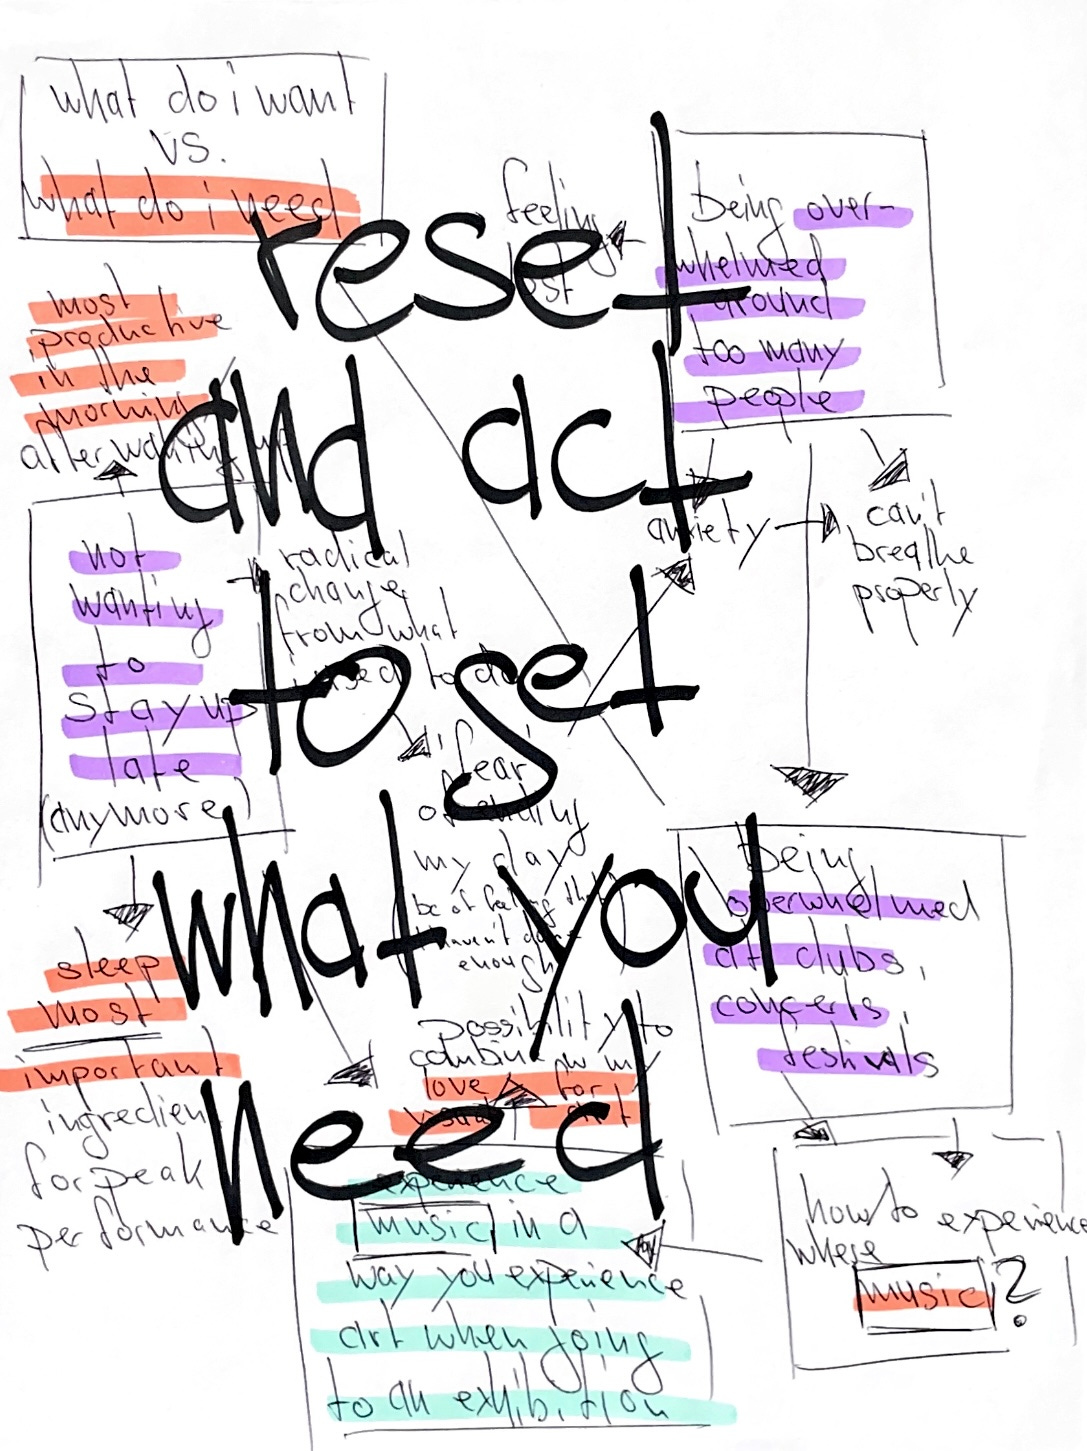 what do i want
vs.
what do i need
reset
and act
to set
what you
need
feeling
lost
being over-
whelmed
around
too many
people
most
productive
in the
morning
after waking up
anxiety
can't
breathe
properly
not
wanting
to
stay up
late
(anymore)
radical
change
from what
used to do
fear
of ending
my day
bc of feeling that
haven't done
enough
sleep
most
important
ingredient
for peak
performance
possibility to
combine my
love for
visual art
being
overwhelmed
at clubs,
concerts,
festivals
experience
music in a
way you experience
art when going
to an exhibition
how to experience
where
music?